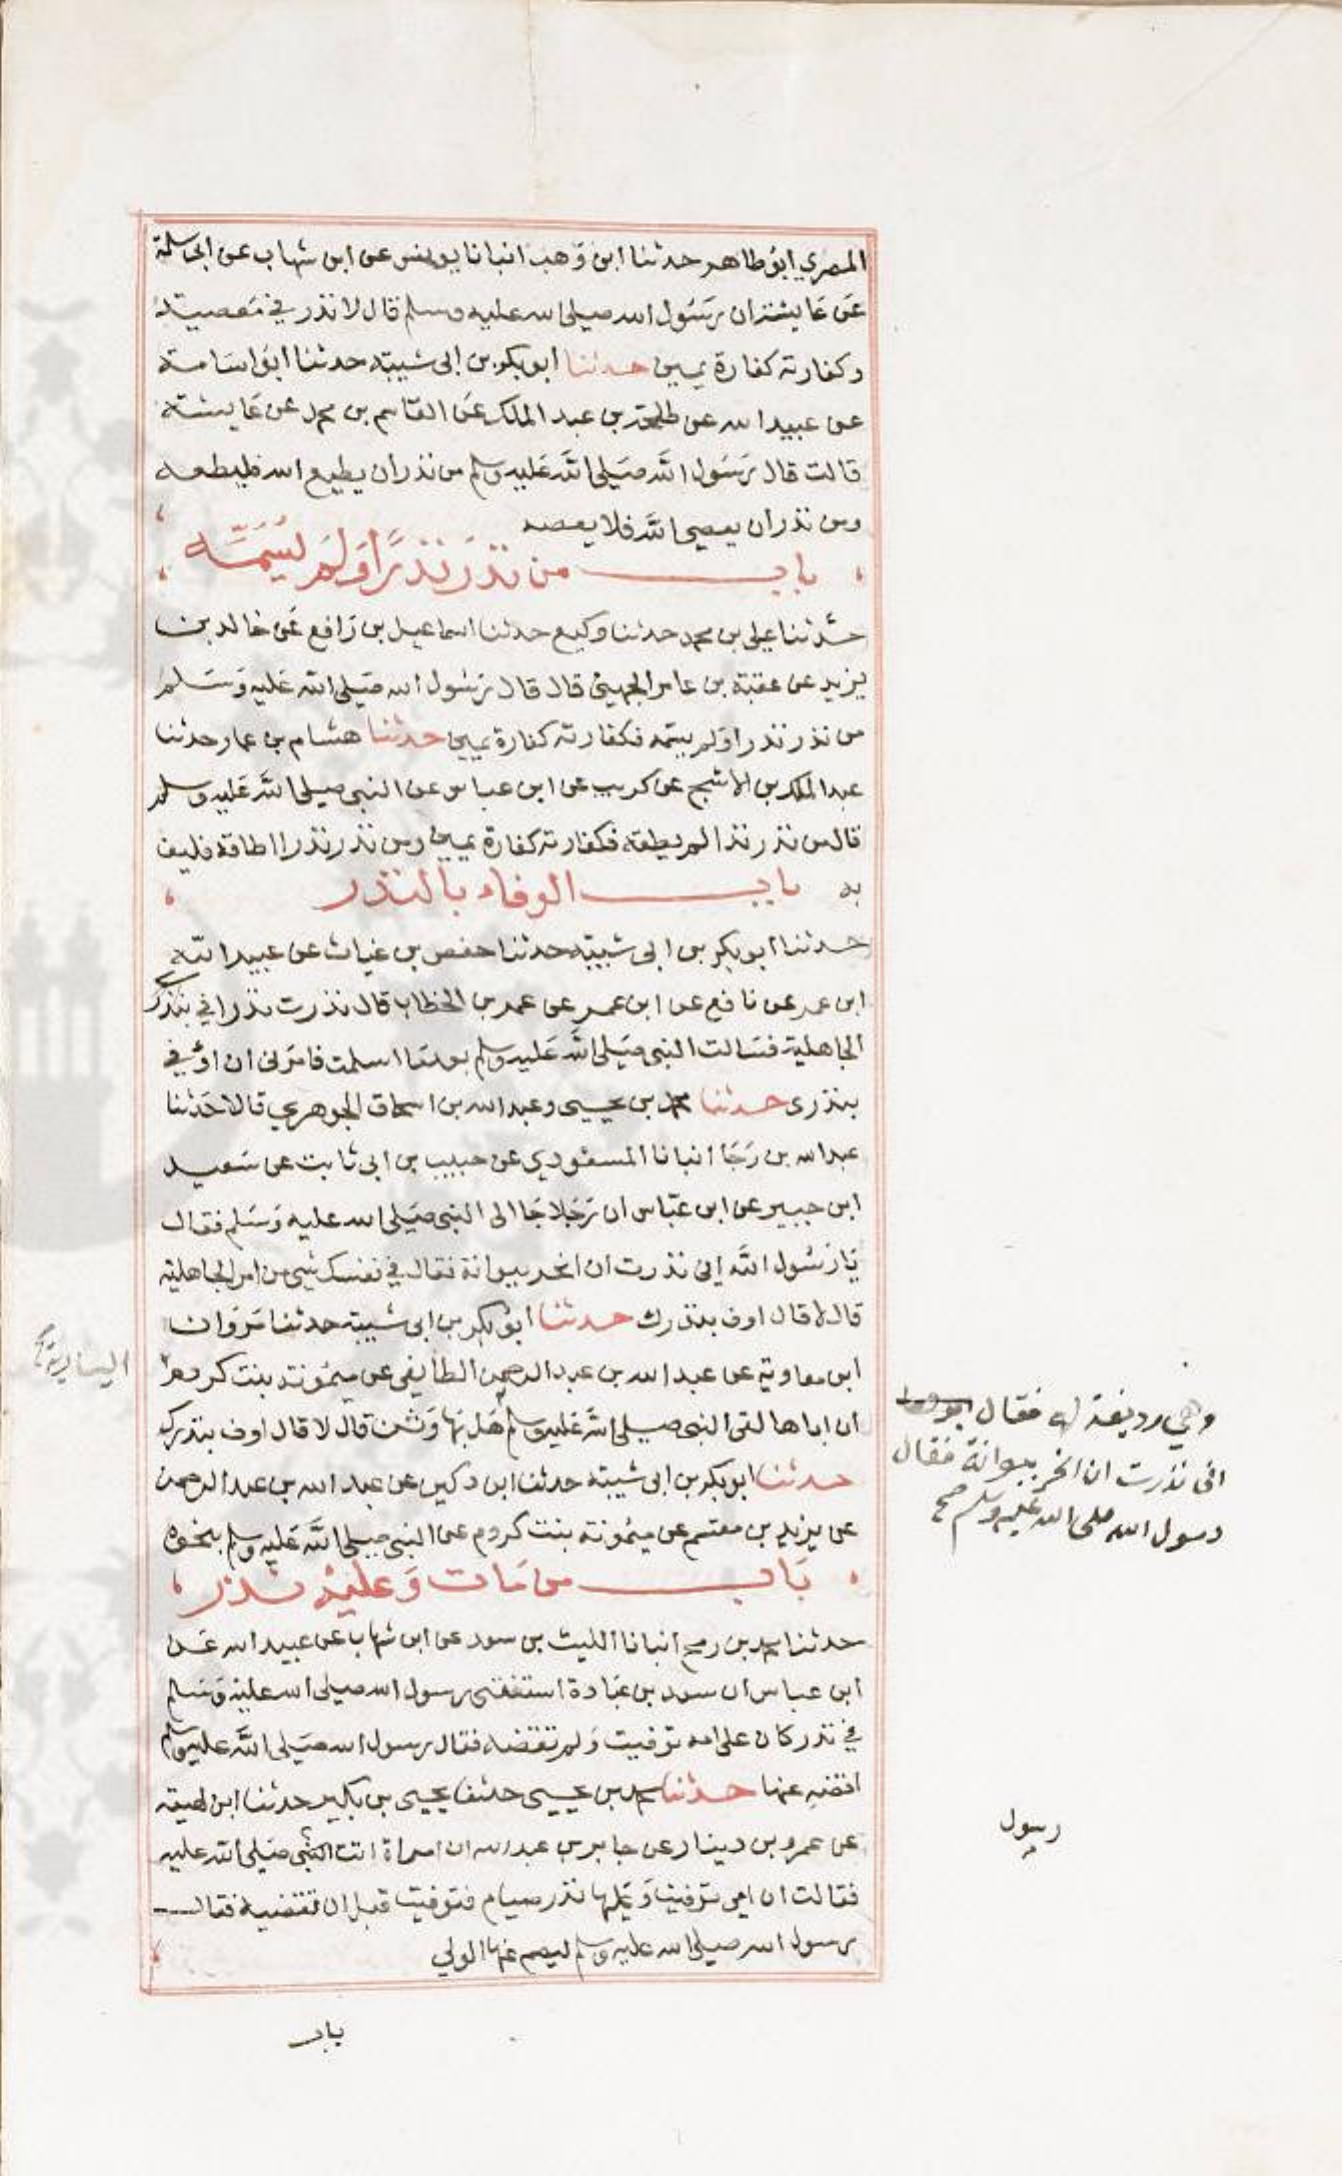 المصري ابو طاهر حدثنا ابن وهب انبانا يونس عن ابن شهاب عن ابي سلمة
عن عايشة ان رسول الله صلى الله عليه وسلم قال لا نذر في معصية
وكفارته كفارة يمين حدثنا ابو بكر بن ابي شيبة حدثنا ابو اسامة
عن عبيد الله عن طلحة بن عبد الملك عن القاسم بن محمد عن عايشة
قالت قال رسول الله صلى الله عليه وسلم من نذر ان يطيع الله فليطعه
ومن نذر ان يعصي الله فلا يعصه
باب من نذر نذرا ولم يسمه
حدثنا علي بن محمد حدثنا وكيع حدثنا اسماعيل بن رافع عن خالد بن
يزيد عن عقبة بن عامر الجهيني قال قال رسول الله صلى الله عليه وسلم
من نذر نذرا ولم يسمه فكفارته كفارة يمين حدثنا هشام بن عمار حدثنا
عبد الملك بن الاشج عن كريب عن ابن عباس عن النبي صلى الله عليه وسلم
قال من نذر نذرا لم يطقه فكفارته كفارة يمين ومن نذر نذرا اطاقه فليف
به باب الوفاء بالنذر
حدثنا ابو بكر بن ابي شيبة حدثنا حفص بن غياث عن عبيد الله
ابن عمر عن نافع عن ابن عمر عن عمر بن الخطاب قال نذرت نذرا في
الجاهلية فسالت النبي صلى الله عليه وسلم بعدما اسلمت فامرني ان اوفي
بنذري حدثنا محمد بن يحيى وعبد الله بن اسحاق الجوهري قالا حدثنا
عبد الله بن رجا انبانا المسعودي عن حبيب بن ابي ثابت عن سعيد
ابن جبير عن ابن عباس ان رجلا جا الى النبي صلى الله عليه وسلم فقال
يا رسول الله إني نذرت ان انحر ببوانة فقال في نفسك شي من امر الجاهلية
قال لا قال اوف بنذرك حدثنا ابو بكر بن ابي شيبة حدثنا مروان
ابن معاوية عن عبد الله بن عبد الرحمن الطايفي عن ميمونة بنت كردم
اليسارية صح
ان اباها لقى النبي صلى الله عليه وسلم هل بها وثن قال لا قال اوف بنذرك
وهي رديفة له فقال
اني نذرت ان انحر ببوانة فقال
رسول الله صلى الله عليه وسلم صح
حدثنا ابو بكر بن ابي شيبة حدثنا ابن دكين عن عبد الله بن عبد الرحمن
عن يزيد بن مقسم عن ميمونة بنت كردم عن النبي صلى الله عليه وسلم بنحوه
باب من مات وعليه نذر
حدثنا محمد بن رمح انبانا الليث بن سعد عن ابن شهاب عن عبيد الله عن
ابن عباس ان سعد بن عبادة استفتى رسول الله صلى الله عليه وسلم
في نذر كان على امه توفيت ولم تقضه فقال رسول الله صلى الله عليه وسلم
اقضه عنها حدثنا محمد بن يحيى حدثنا يحيى بن بكير حدثنا ابن لهيعة
عن عمرو بن دينار عن جابر بن عبد الله ان امراة اتت النبي صلى الله عليه
رسول
فقالت ان امي توفيت وعليها نذر صيام فتوفيت قبل ان تقضيه فقال
رسول الله صلى الله عليه وسلم ليصم عنها الولي
باب